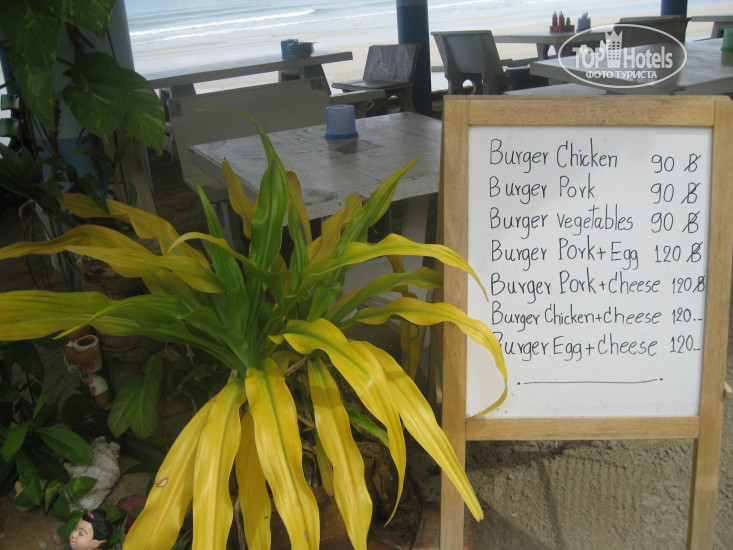 TopHotels
ФОТО ТУРИСТА
Burger Chicken 90 ฿
Burger Pork 90 ฿
Burger vegetables 90 ฿
Burger Pork+Egg 120 ฿
Burger Pork+Cheese 120 ฿
Burger Chicken+cheese 120..
Burger Egg+cheese 120..